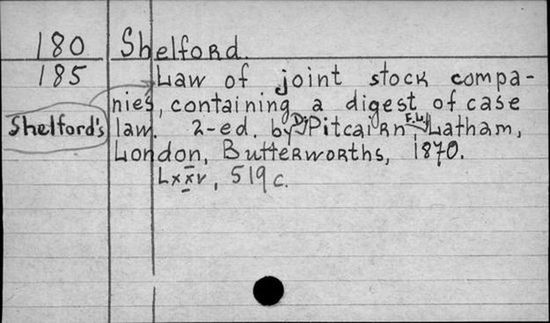 180 Shelford.
185 Law of joint stock compa-
nies, containing a digest of case
Shelford's law. 2-ed. by D. Pitcairn F.L. Latham,
London, Butterworths, 1870.
Lxxv, 519 c.